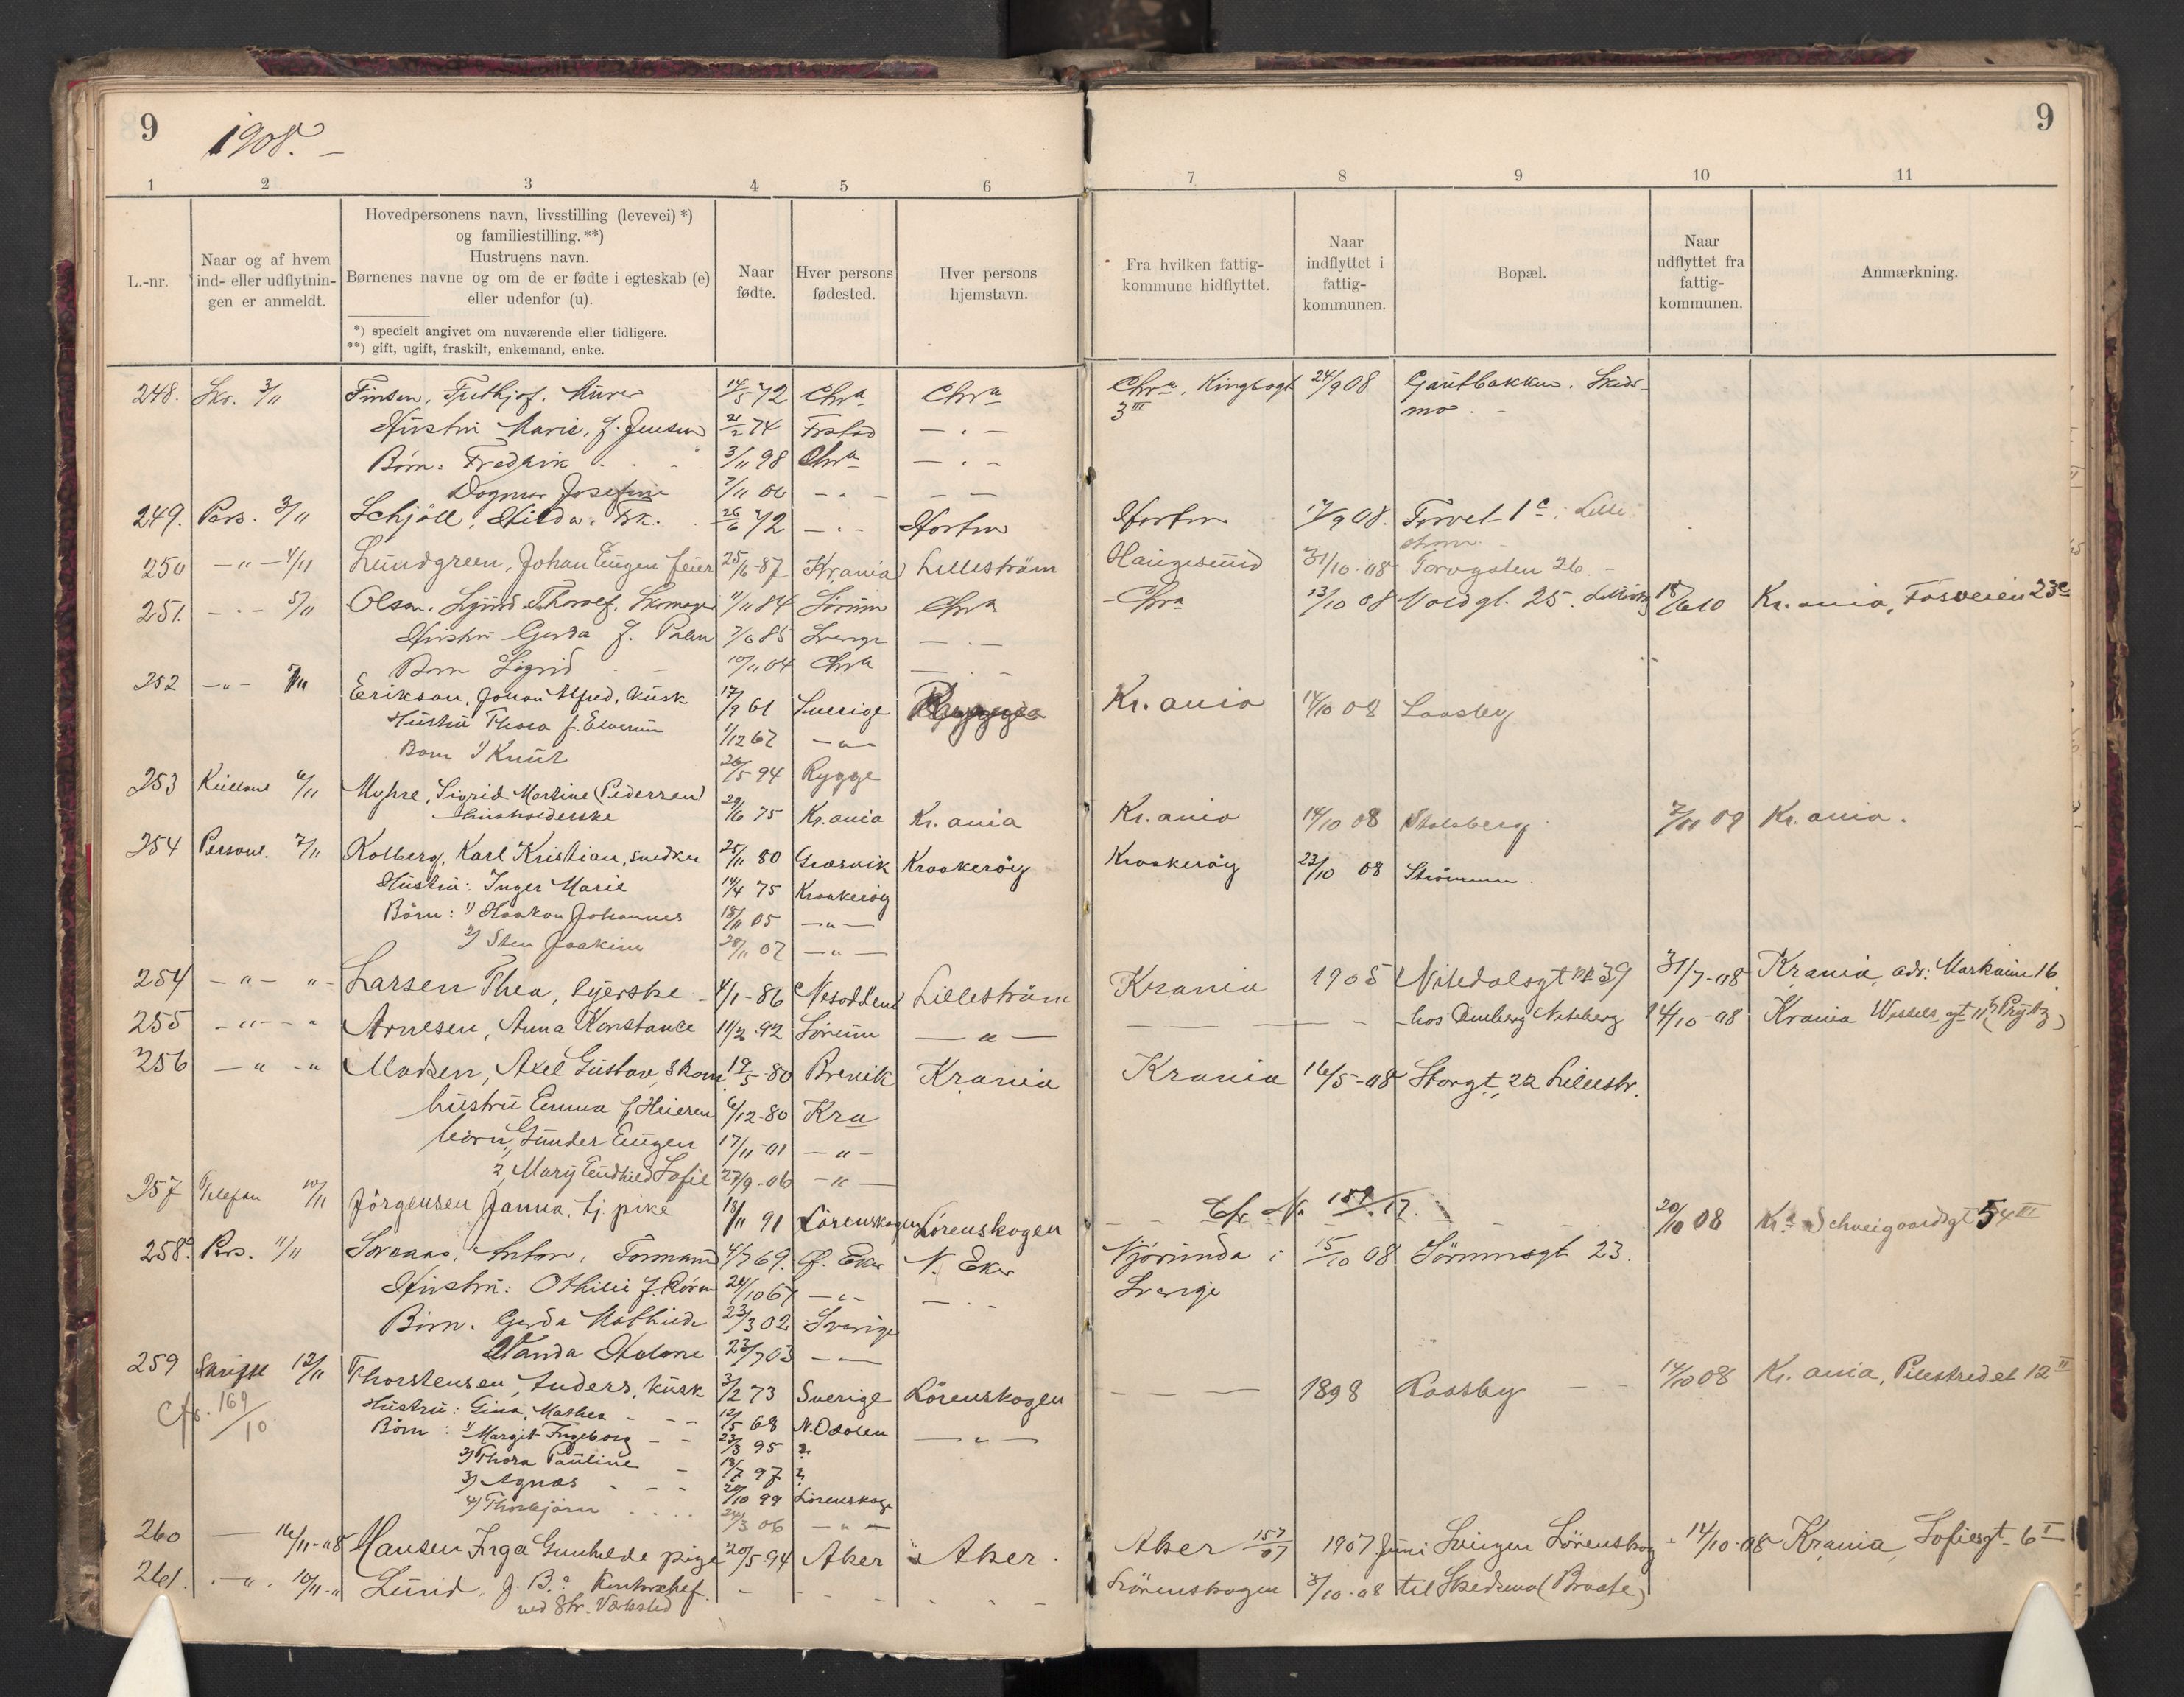 9
1908. –
9
1 2 3 4 5 6 7 8 9 10 11
L.-nr.
Naar og af hvem
ind- eller udflytnin-
gen er anmeldt.
Hovedpersonens navn, livsstilling (levevei) *)
og familiestilling. **)
Hustruens navn.
Børnenes navne og om de er fødte i egteskab (e)
eller udenfor (u).
*) specielt angivet om nuværende eller tidligere.
**) gift, ugift, fraskilt, enkemand, enke.
Naar
fødte.
Hver persons
fødested.
Hver persons
hjemstavn.
Fra hvilken fattig-
kommune hidflyttet.
Naar
indflyttet i
fattig-
kommunen.
Bopæl.
Naar
udflyttet fra
fattig-
kommunen.
Anmærkning.
248. Skr. 3/11 Finsen, Murer 14/5 72 Chra Chra Chra, 24/9 08 Skeds-
3 III mo. –
Hustru Marie, f. Jensen 21/2 74 – „ –
Børn: Fredrik 3/11 98 Chra – „ –
Dagmar Josefine 7/11 06 – „ – – –
249. Pers. 3/11 Schjöll, Hilda, Frk. 26/6 72 – „ – Horten Horten 17/9 08. Torvet 1c, Lille
strøm. –
250 – „ – 4/11 Lundgreen, Johan Eugen feier 25/6-87 Kr.ania Lilleström Haugesund 31/10-08 Torvgaten 26. –
251. – „ – 5/11 Olsen, Thorolf, Skomager 11/11 84 Sörum Chra Chra 13/10 08 Voldgt. 25. 18/6 10 Kr.ania, Fosveien 23c
Hustru Gerda f. 7/6 85 Sverge – „ –
Barn Sigrid 10/11 04 Chra – „ –
252 – „ – 5/11 Erikson, Johan Alfred, kusk 17/9 61 Sverige Kr.ania 14/10 08 Laasby
Hustru Thora f. Elverum 1/12 67 – „ –
Barn 1) Knut 26/5 94 Rygge
253 6/11 Myhre, Sigrid Martine (Pedersen) 29/6 75 Kr.ania Kr.ania Kr.ania 14/10 08 Stalsberg 7/11 09 Kr.ania.
husholderske
254 Personl. 7/11 Kolberg, Karl Kristian, snedker 25/11 80 Græsvik Kraakeröy Kraakeröy 23/10 08 Strømmen.
Hustru: Inger Marie 14/4 75 Kraakeröy
Börn: 1) Haakon Johannes 18/11 05 – „ –
2) Sten Joakim 28/11 07 – „ –
254 – „ – „ – Larsen Thea, syerske – 4/1-86 Nesodden Lilleström Krania 1905 Nitedalsgt nr 39 31/7-08 Krania, adr: Markveien 16
255 – „ – „ Arnesen, Anna Konstance 11/2-92 Sörum – „ – – – – hos Nitteberg 14/10-08 Krania Wessels gt 11
256 – „ – „ Madsen, Axel Gustav, skom. 19/5-80 Brevik Krania Krania 16/5-08 Storgt. 22 Lillestr.
hustru Emma f Heieren 6/12-80 Kra
börn, Gunder Eugen 17/11-01 – „ –
2, Mary Sofie 27/9-06 – „ –
257 Telefon 10/11 Jörgensen Janna, tj. pike 18/11 91 Lörenskogen Lörenskogen Cfr. Nr. 20/10 08 Kr. Schweigaardsgt 54 III
258. Pers. 11/11 Anton, Formand 4/7 69. Ø. Eker N. Eker i 15/10 08 Sörumsgt 23.
Hustru: Othilie f. 24/10 67 – „ – – „ – Sverige
Børn. Gerda Mathilde 23/3 02 Sverige
Wanda Helene 23/7 03 – „ –
259 Skriftl 12/11 Thorstensen, Anders, kusk 3/2 73 Sverige Lörenskogen – – – 1898 Laasby – – 14/10 08 Kr.ania, Pilestredet 12 II
Cfr. 169/10
Hustru: Gina, Mathea – – – 12/5 68 N.Odalen
Börn: 1) Margit Ingeborg – – 23/3 95 ? – „ –
2) Thora Pauline – 18/7 97 ?
3) Agnas – – – 20/10 99 Lörenskoge
4) Thorbjörn . . . . 24/3 06 – „ –
260 – 16/11-08 Hansen Inga Gunhilde pige 20/5-94 Aker Aker. Aker 157/07 1907 Juni Svingen Lörenskog – 14/10-08 Krania, Sofiesgt 6 I
261. – „ – 10/11-„ Lund, J. B. Kontorchef. – – – Lörenskogen 3/10-08 til Skedsmo (Braate)
ved Str. Værksted